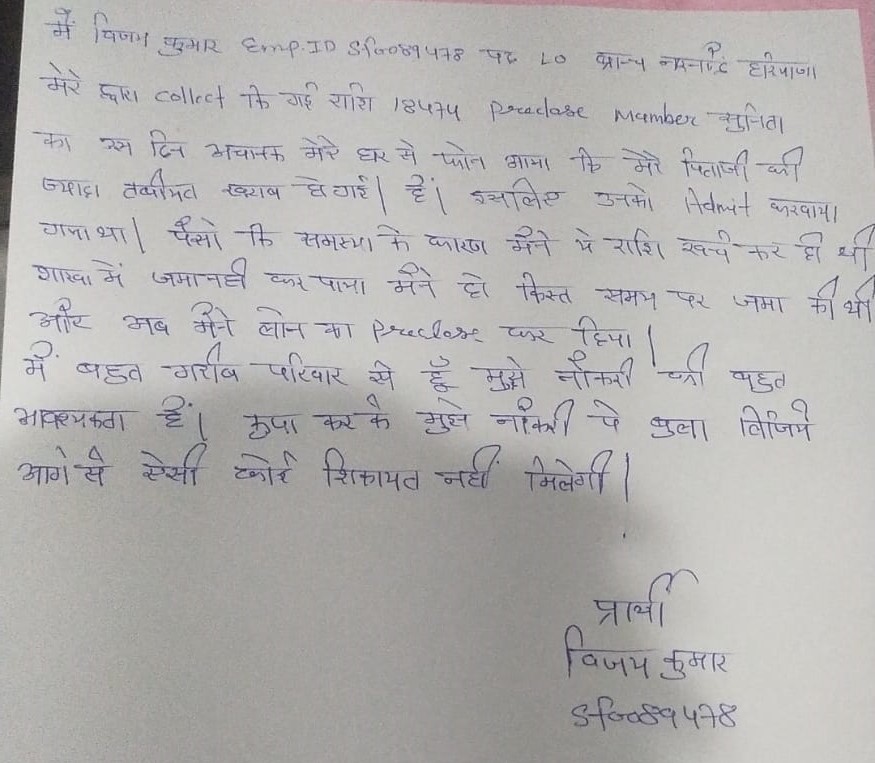 मैं विजय कुमार Emp.ID SfG089478 पद LO ब्रान्च हरियाणा
मेरे द्वारा collect कि गई राशि 18474 Preclose Mamber सुनिता
का उस दिन अचानक मेरे घर से फोन आया कि मेरे पिताजी की
ज्यादा तबीयत खराब हो गई| हैं| इसलिए उनको Admit करवाया
गया था| पैसो कि समस्या के कारण मैंने ये राशि खर्च कर दी थी
शाखा में जमा नही कर पाया मैंने दो किस्त समय पर जमा की थी
और अब मैंने लोन का Preclose कर दिया|
मैं बहुत गरीब परिवार से हूँ मुझे नौकरी की बहुत
आवश्यकता हैं| कृपा कर के मुझे नौकरी पे बुला लिजिये
आगे से ऐसी कोई शिकायत नहीं मिलेगी|
प्रार्थी
विजय कुमार
SfG089478